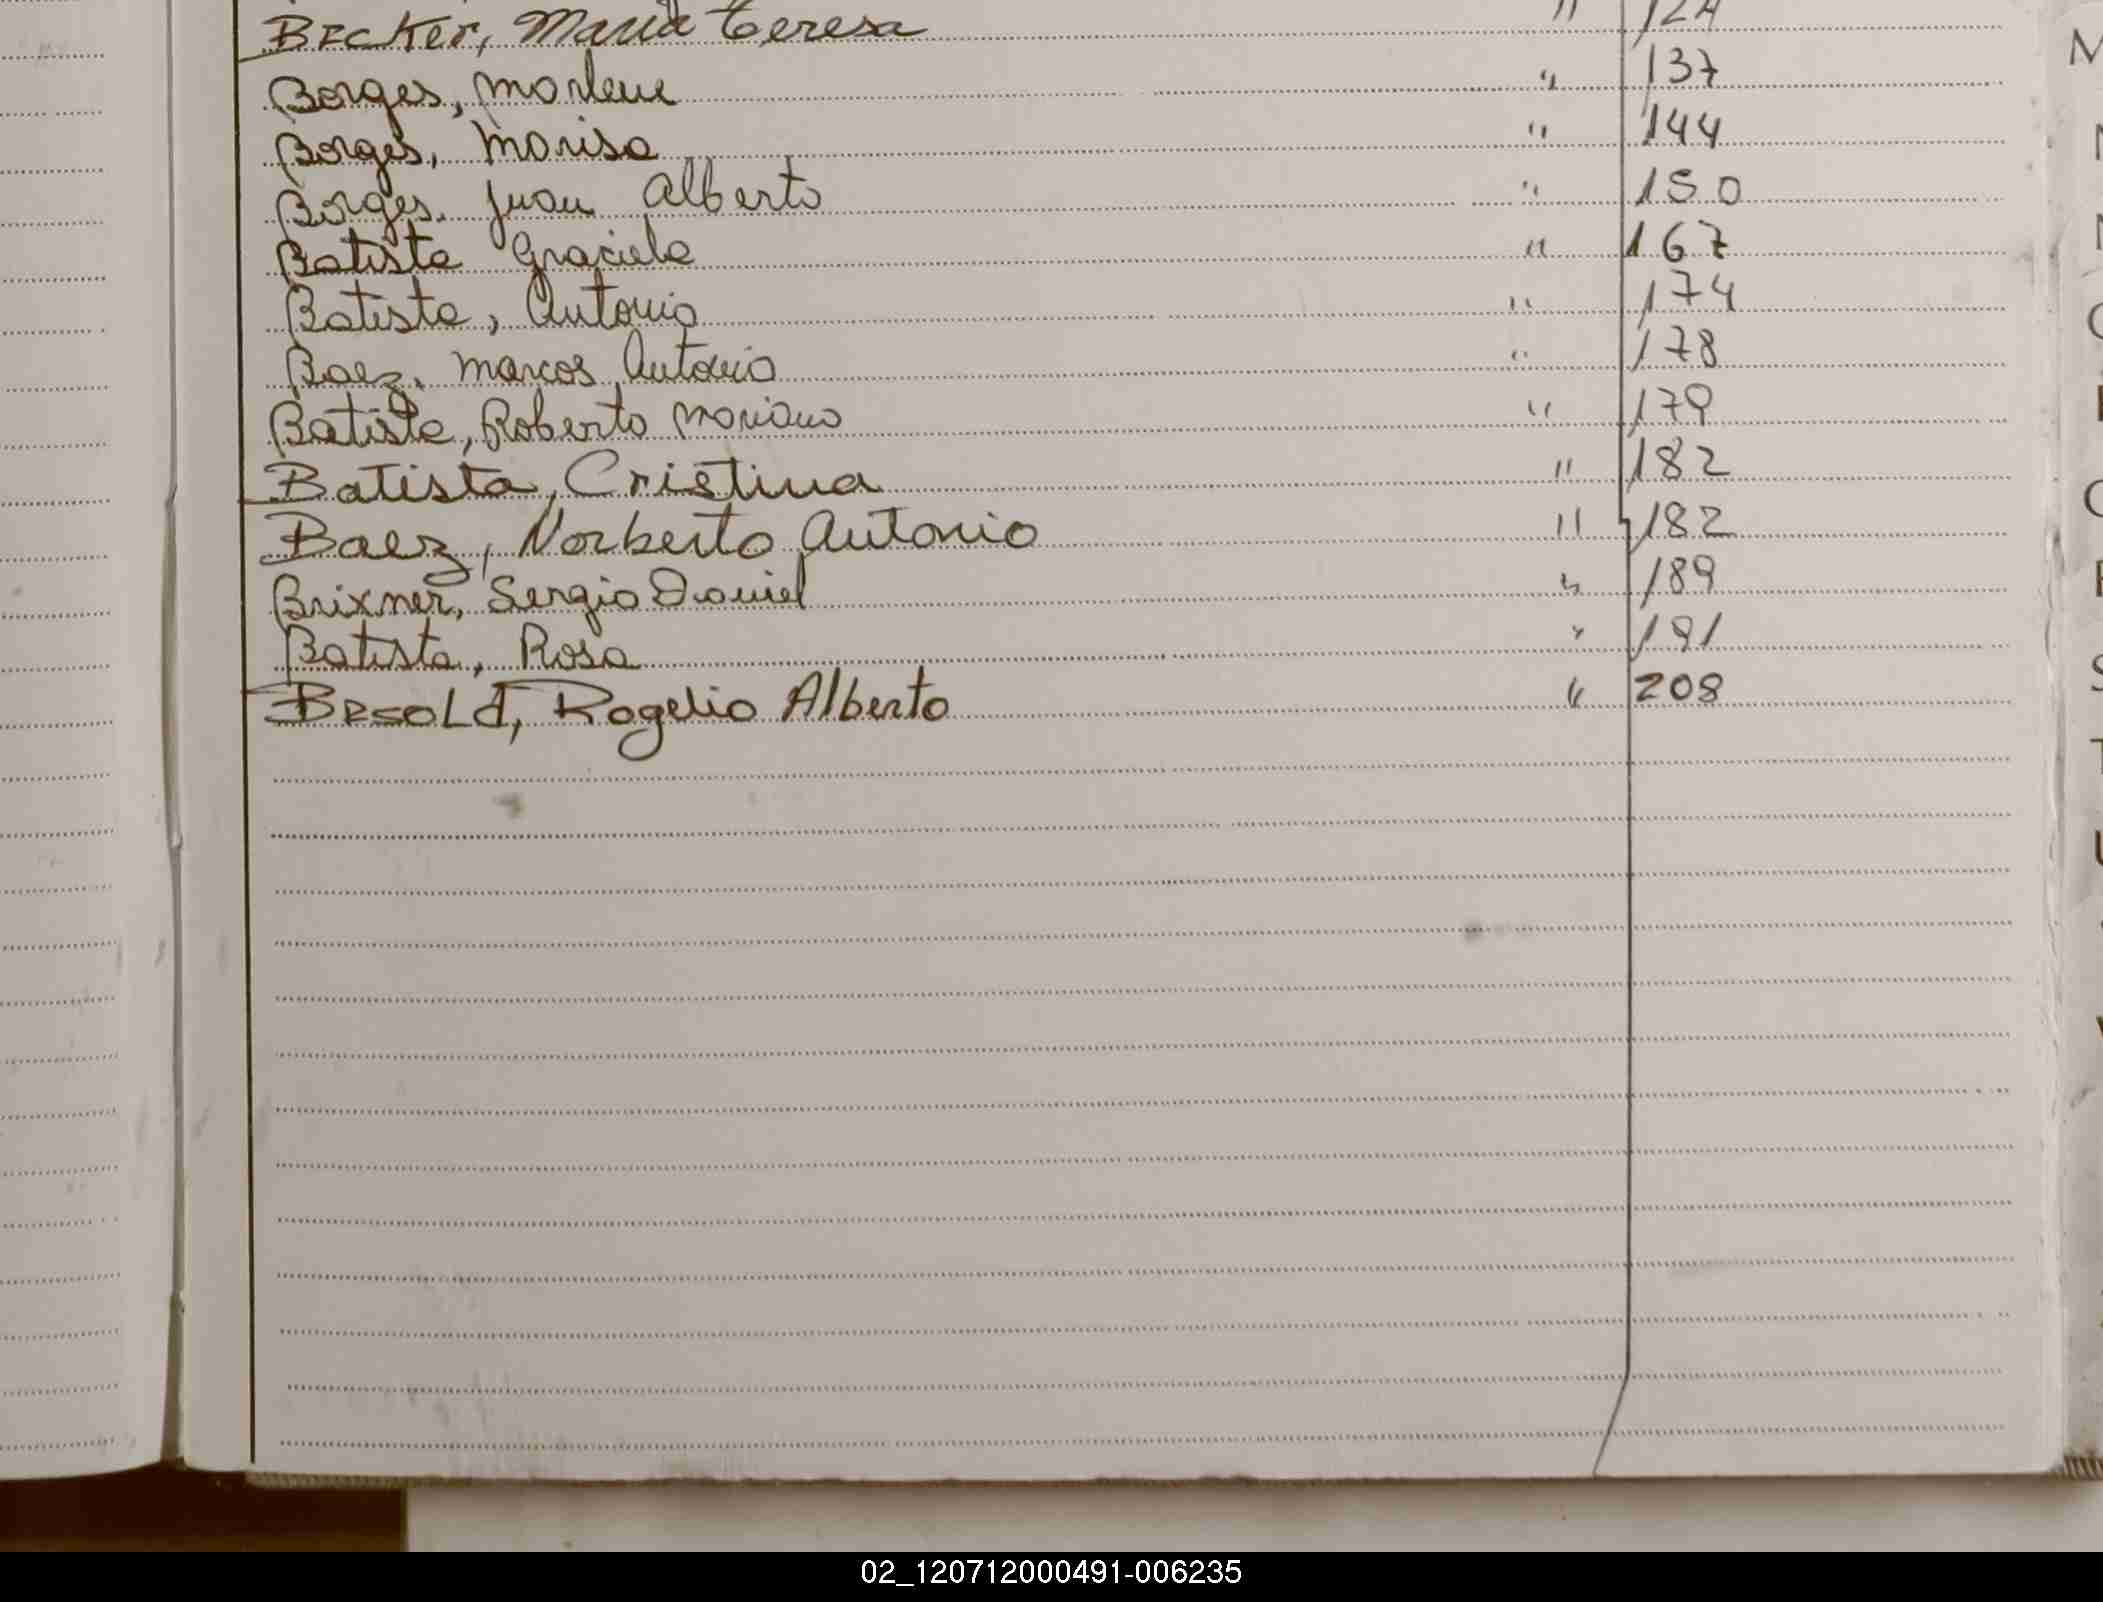 Becker, Maria Teresa " 124
Borges, Marlene " 137
Borges, Marisa " 144
Borges, Juan Alberto " 150
Batista Graciela " 167
Batista, Antonio " 174
Baez, Marcos Antonio " 178
Batista, Roberto Mariano " 179
Batista, Cristina " 182
Baez, Norberto Antonio " 182
Brixner, Sergio Daniel " 189
Batista, Rosa " 191
Besold, Rogelio Alberto " 208
02_120712000491-006235